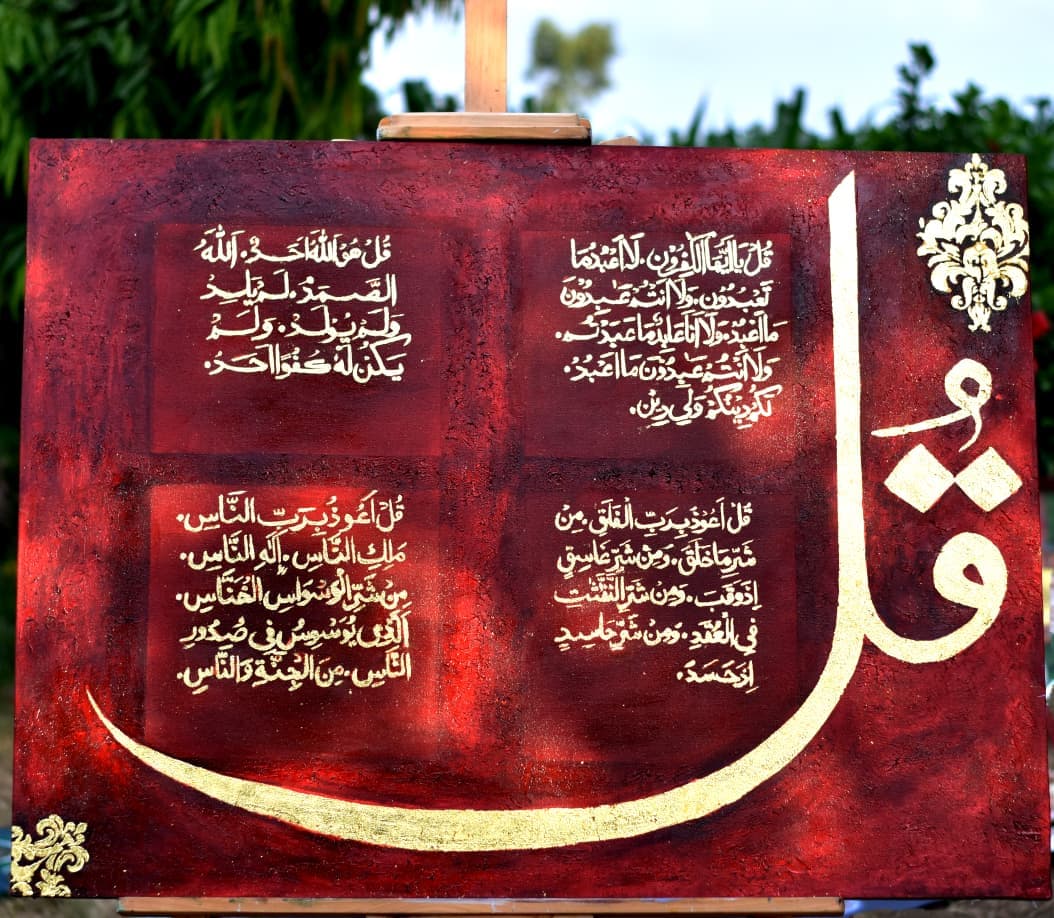 قُلْ
قُلْ يَاأَيُّهَا الْكَافِرُونَ. لَا أَعْبُدُ مَا
تَعْبُدُونَ. وَلَا أَنْتُمْ عَابِدُونَ
مَا أَعْبُدُ. وَلَا أَنَا عَابِدٌ مَا عَبَدْتُمْ.
وَلَا أَنْتُمْ عَابِدُونَ مَا أَعْبُدُ.
لَكُمْ دِينُكُمْ وَلِيَ دِيْنِ.
قُلْ هُوَ اللهُ اَحَدٌ. اَللهُ
الصَّمَدُ. لَمْ يَلِدْ
وَلَمْ يُوْلَدْ. وَلَمْ
يَكُنْ لَهُ كُفُوًا اَحَدٌ.
قُلْ اَعُوْذُ بِرَبِّ الْفَلَقِ. مِنْ
شَرِّ مَا خَلَقَ. وَمِنْ شَرِّ غَاسِقٍ
اِذَ وَقَبَ. وَمِنْ شَرِّ النَّفّٰثٰتِ
فِي الْعُقَدِ. وَمِنْ شَرِّ حَاسِدٍ
اِذَ حَسَدَ.
قُلْ اَعُوْذُ بِرَبِّ النَّاسِ.
مَلِكِ النَّاسِ. اِلٰهِ النَّاسِ.
مِنْ شَرِّ الْوَسْوَاسِ الْخَنَّاسِ.
الَّذِى يُوَسْوِسُ فِى صُدُوْرِ
النَّاسِ. مِنَ الْجِنَّةِ وَالنَّاسِ.